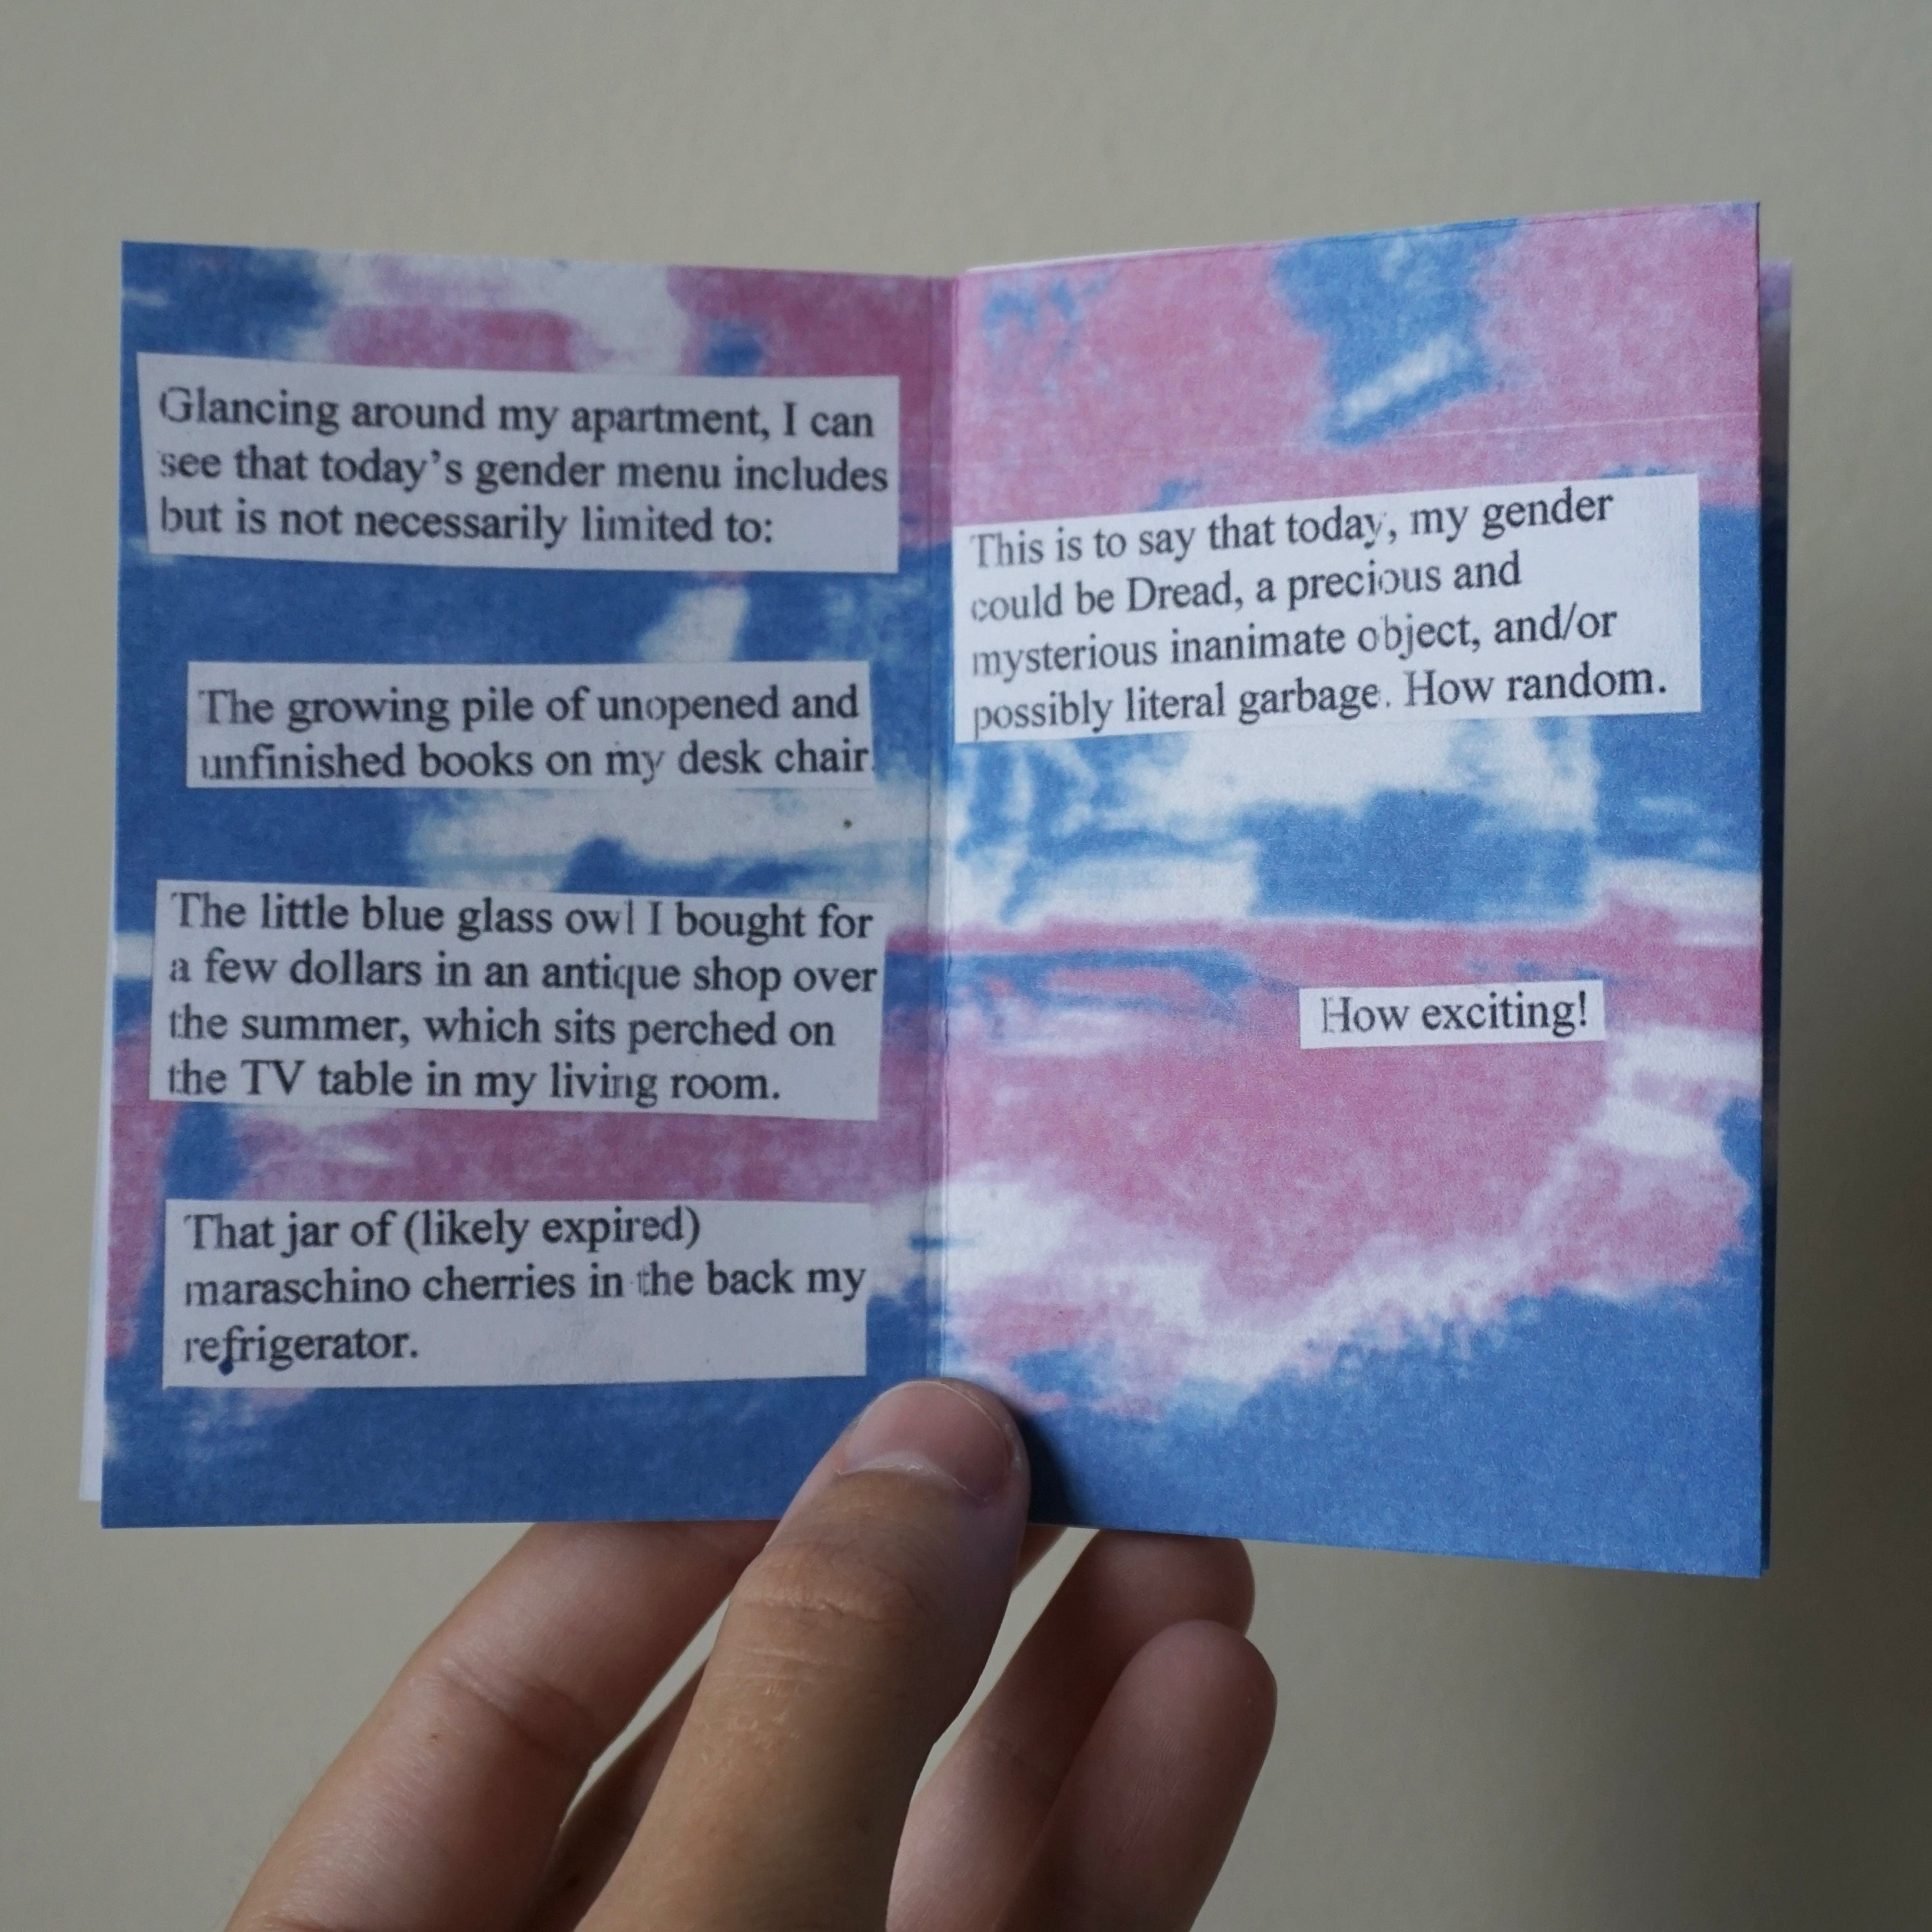 Glancing around my apartment, I can
see that today’s gender menu includes
but is not necessarily limited to:
The growing pile of unopened and
unfinished books on my desk chair.
The little blue glass owl I bought for
a few dollars in an antique shop over
the summer, which sits perched on
the TV table in my living room.
That jar of (likely expired)
maraschino cherries in the back my
refrigerator.
This is to say that today, my gender
could be Dread, a precious and
mysterious inanimate object, and/or
possibly literal garbage. How random.
How exciting!